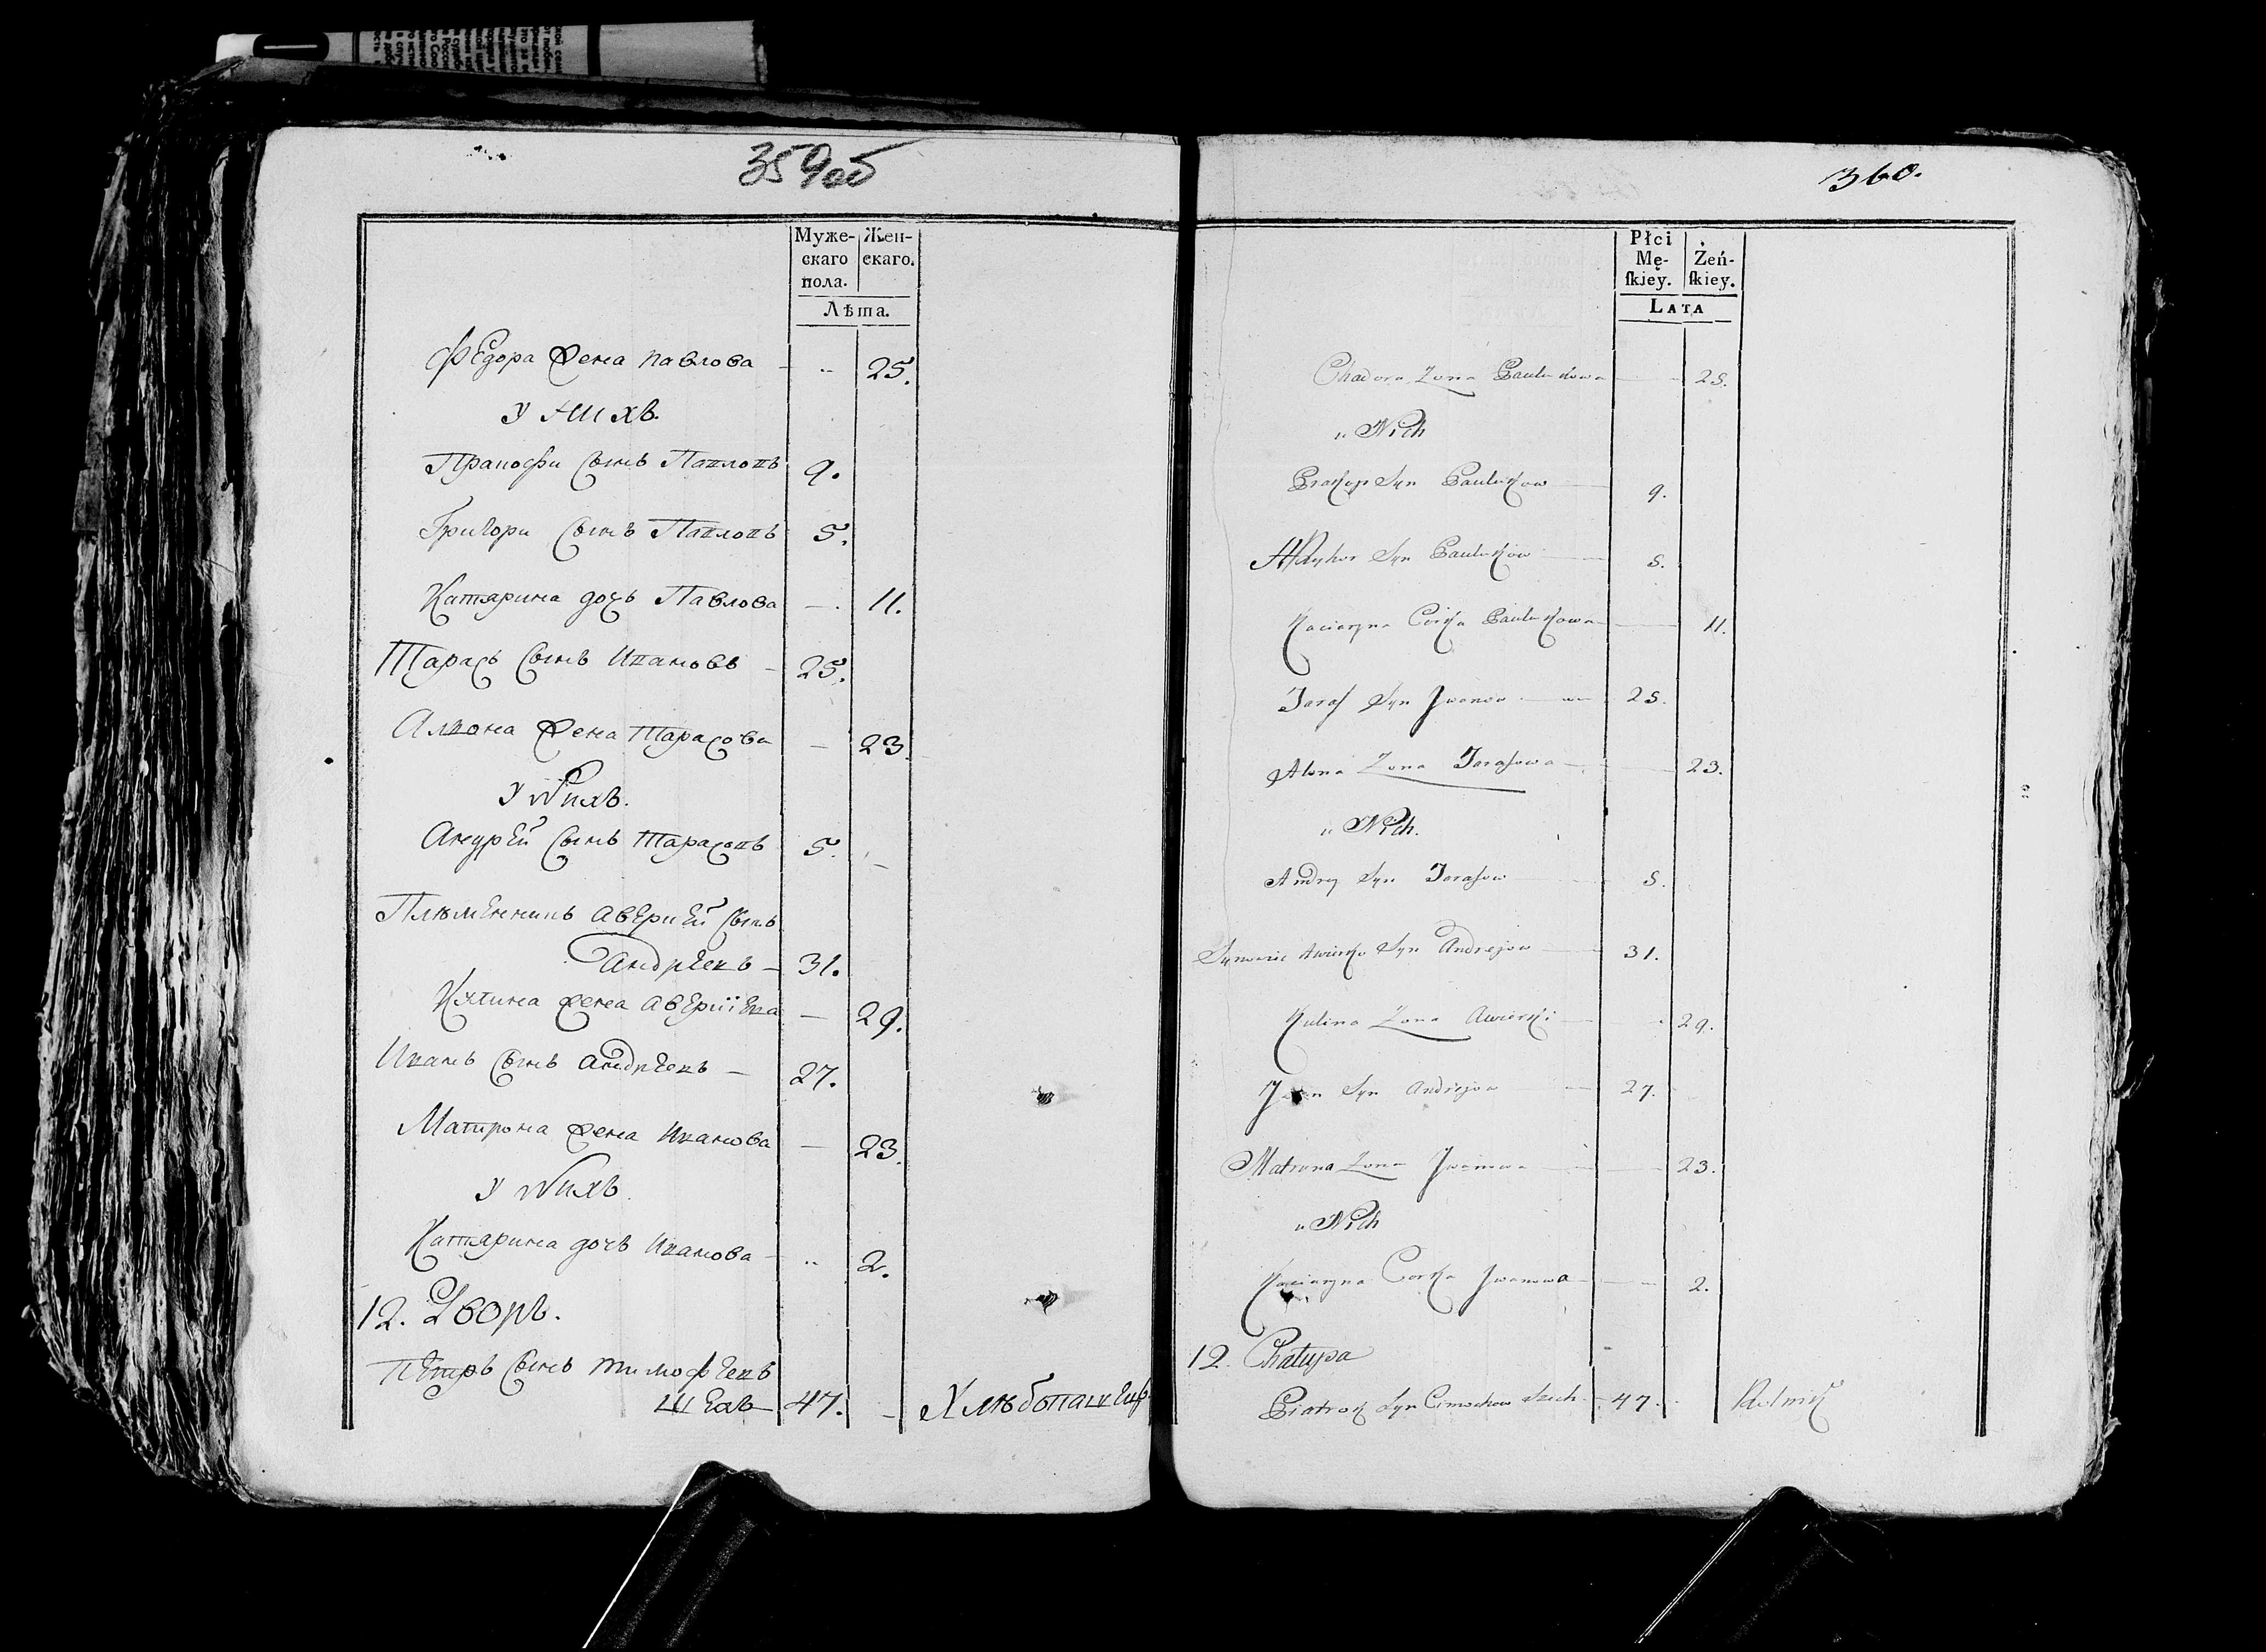 359об
Муже- Жен-
скаго скаго.
пола.
Лѣта.
Федора жена павлова - .. 25.
У нихъ.
Прапофи сынъ Павловъ 9.
Григори сынъ Павловъ 5.
Катярина дочь Павлова - 11.
Тарасъ сынъ Ивановъ - 25.
Алюна жена Тарасова - 23
У нихъ.
Андрей сынъ Тарасовъ 5. -
Плѣменникъ аверией сынъ
андрѣевъ - 31.
жена аверйева - 29.
Иванъ сынъ андрѣевъ - 27.
Матрона жена Иванова - 23.
У нихъ.
Катярина дочь Иванова - .. 2.
12. Дворъ.
Петръ сынъ тимофѣевъ
47. - Хлѣбопашец
360.
Płci Żeń-
Mę- ſkiey.
ſkiey.
Lata
Chadora Żona Paulukowa 25.
u Nich
Prakop Syn Paulukow 9.
Syn Paulukow 5.
Kaciaryna Córka Paulukowa 11.
Taraſ Syn Jwanow 25.
Alona Żona Taraſowa 23.
u Nich.
Andrey Syn Taraſow 5.
Synowiec Awierko Syn Andrejow 31.
Kulina Żona Awierki 29.
Syn Andrejow 27.
Matruna Żona Jwanowa 23.
u Nich
Kaciaryna Corka Jwanowa 2.
12. Chałupa
Piatrok Syn Cimochow 47 Rolnik